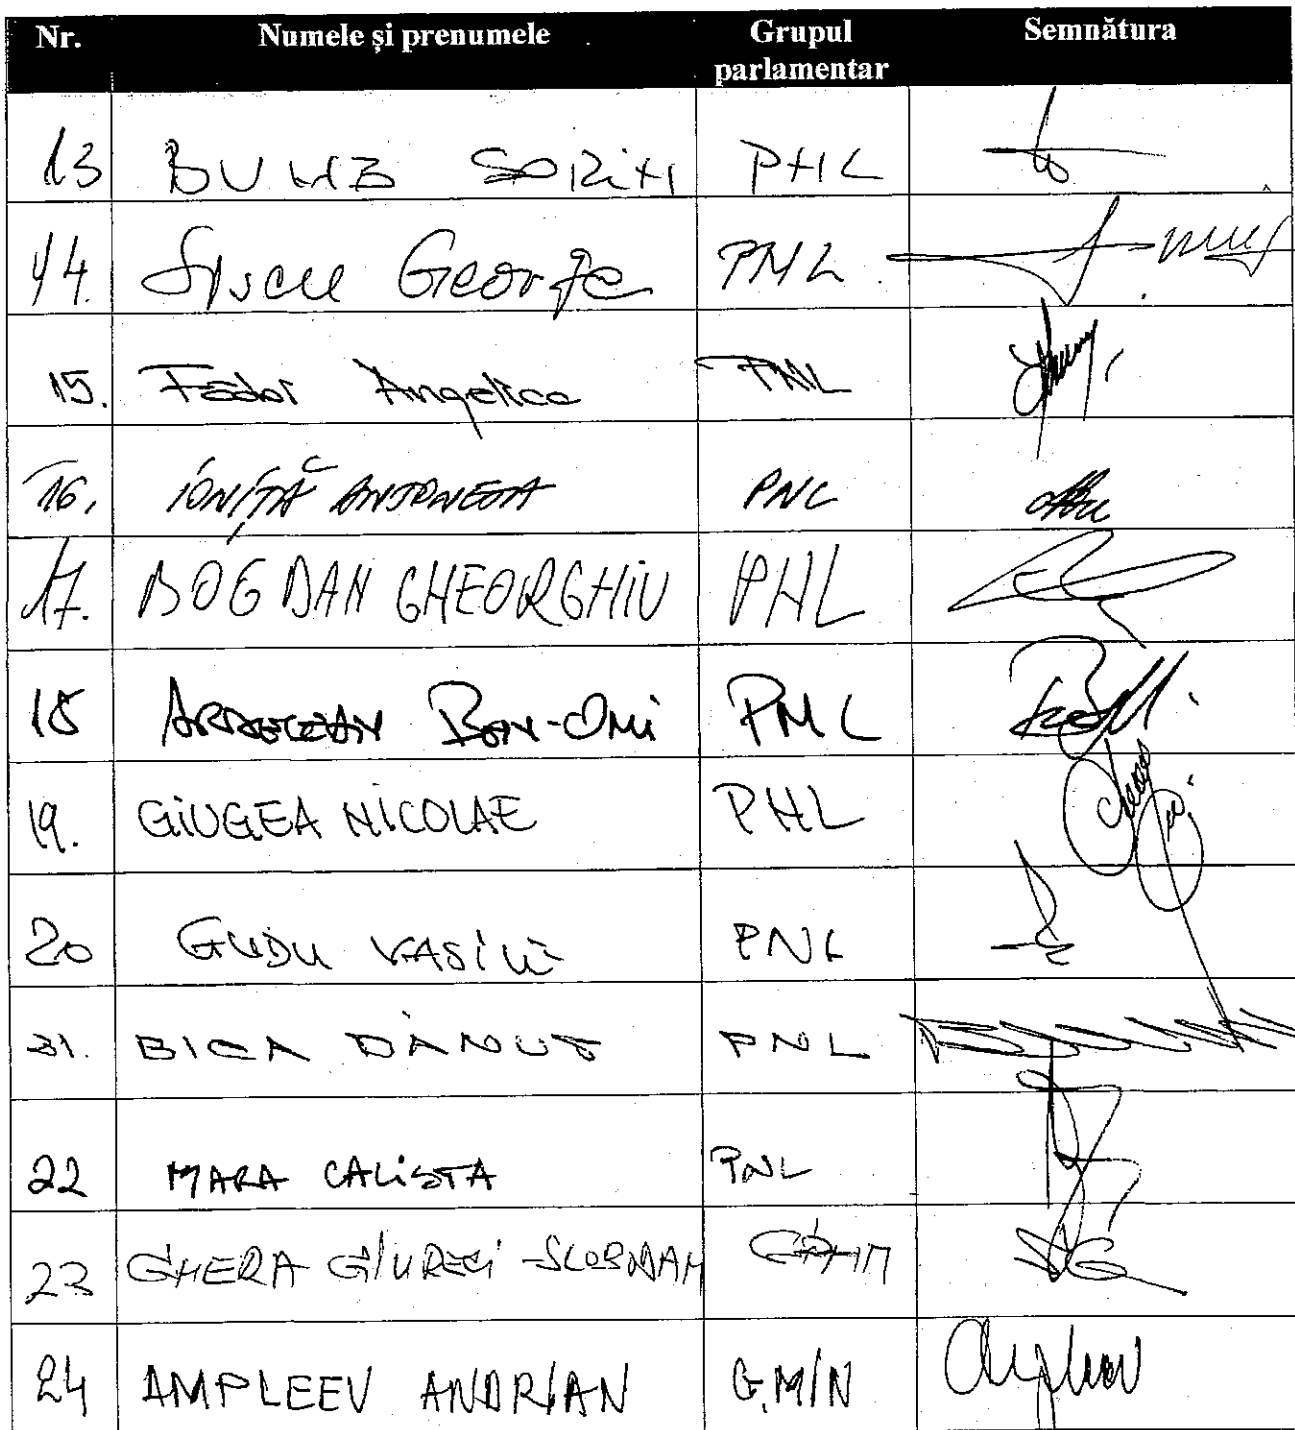 Nr. Numele și prenumele Grupul parlamentar Semnătura
13 BUMB SORIN PNL
14. Șișcu George PNL
15. Fedor Angelica PNL
16. IONIȚĂ ANTONETA PNL
17. BOGDAN GHEORGHIU PNL
18 ARDELEAN BEN-ONI PNL
19. GIUGEA NICOLAE PNL
20 GUDU VASILE PNL
21. BICA DĂNUȚ PNL
22 MARA CALISTA PNL
23 GHERA GIURECI-SLOBODAN
24 AMPLEEV ANDRIAN G.MIN